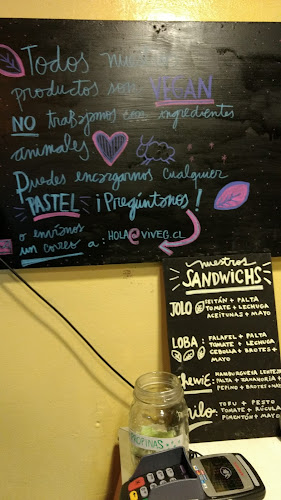 Todos nuestros
productos son VEGAN
NO trabajamos con ingredientes
animales.
Puedes encargarnos cualquier
PASTEL ¡Pregúntanos!
o envíanos
un correo a: HOLA@VIVEG.CL
nuestros
SANDWICHS
JOLO SEITÁN + PALTA
TOMATE + LECHUGA
ACEITUNAS + MAYO
LOBA: FALAFEL + PALTA
TOMATE + LECHUGA
CEBOLLA + BROTES +
MAYO
HEWIE: HAMBURGUESA LENTEJA
PALTA + ZANAHORIA +
PEPINO + BROTES + MAYO
TOFU + PESTO
TOMATE + RÚCULA
PIMENTÓN + MAYO
PROPINAS